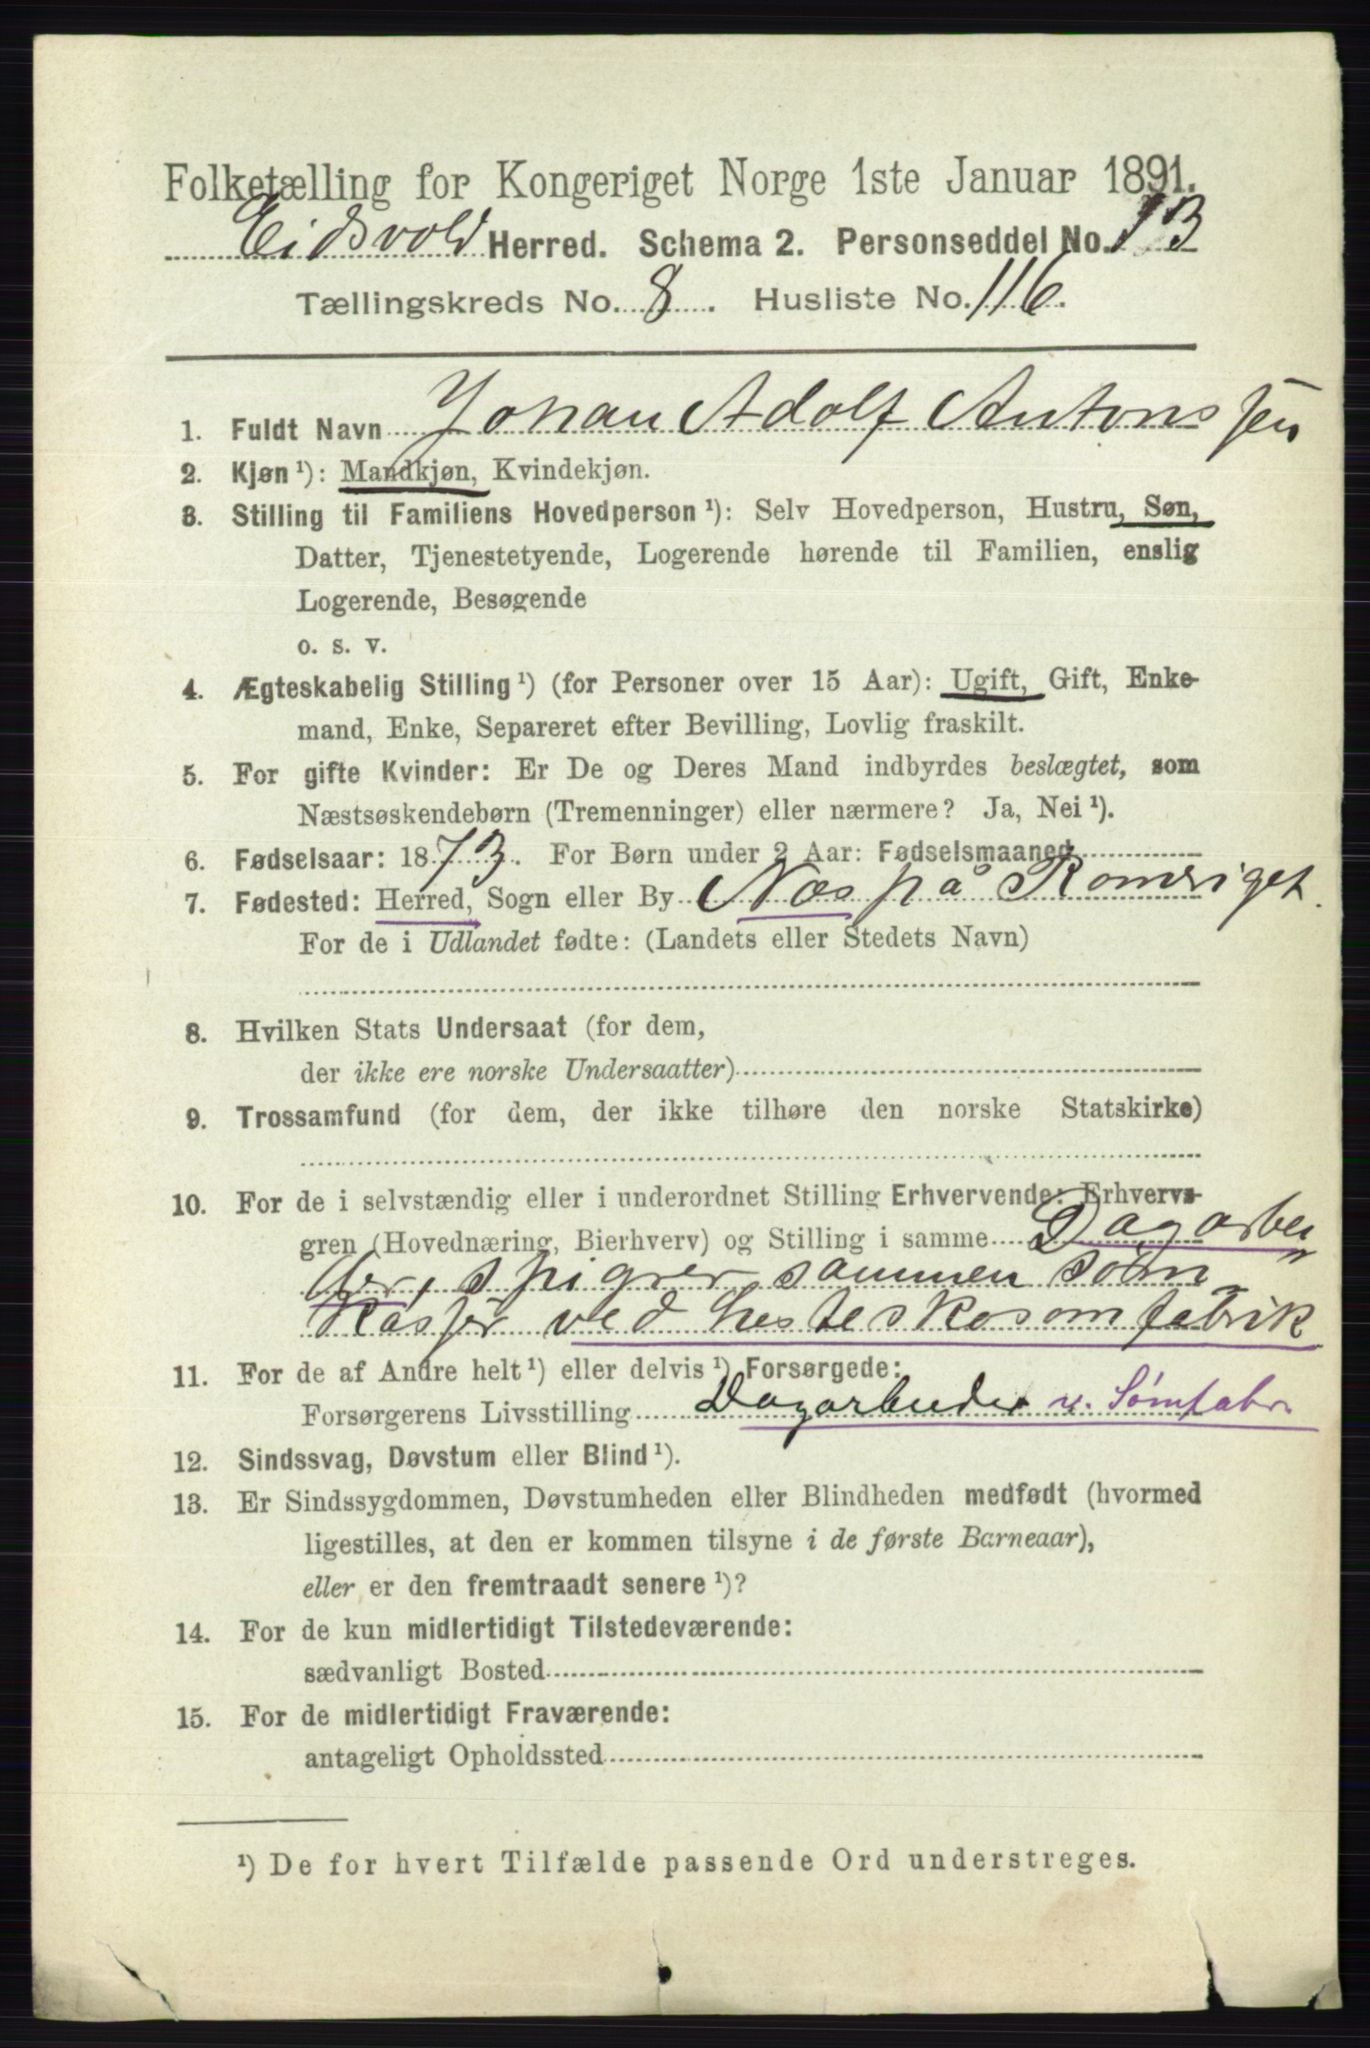 Folketælling for Kongeriget Norge 1ste Januar 1891.
Eidsvold Herred. Schema 2. Personseddel No. 13
Tællingskreds No. 8. Husliste No. 116.
1. Fuldt Navn Johan Adolf Antonssen
2. Kjøn ¹): Mandkjøn, Kvindekjøn.
3. Stilling til Familiens Hovedperson ¹): Selv Hovedperson, Hustru, Søn,
Datter, Tjenestetyende, Logerende hørende til Familien, enslig
Logerende, Besøgende
o. s. v.
4. Ægteskabelig Stilling ¹) (for Personer over 15 Aar): Ugift, Gift, Enke-
mand, Enke, Separeret efter Bevilling, Lovlig fraskilt.
5. For gifte Kvinder: Er De og Deres Mand indbyrdes beslægtet, som
Næstsøskendebørn (Tremenninger) eller nærmere? Ja, Nei ¹).
6. Fødselsaar: 1873. For Børn under 2 Aar: Fødselsmaaned
7. Fødested: Herred, Sogn eller By Næs på Romeriget.
For de i Udlandet fødte: (Landets eller Stedets Navn)
8. Hvilken Stats Undersaat (for dem,
der ikke ere norske Undersaatter)
9. Trossamfund (for dem, der ikke tilhøre den norske Statskirke)
10. For de i selvstændig eller i underordnet Stilling Erhvervende: Erhvervs-
gren (Hovednæring, Bierhverv) og Stilling i samme Dagarbei
der, spigrer sammen søm
Kasser ved hesteskosømfabrik
11. For de af Andre helt ¹) eller delvis ¹) Forsørgede:
Forsørgerens Livsstilling Dagarbeider v. Sømfabr.
12. Sindssvag, Døvstum eller Blind ¹).
13. Er Sindssygdommen, Døvstumheden eller Blindheden medfødt (hvormed
ligestilles, at den er kommen tilsyne i de første Barneaar),
eller er den fremtraadt senere ¹)?
14. For de kun midlertidigt Tilstedeværende:
sædvanligt Bosted
15. For de midlertidigt Fraværende:
antageligt Opholdssted
¹) De for hvert Tilfælde passende Ord understreges.